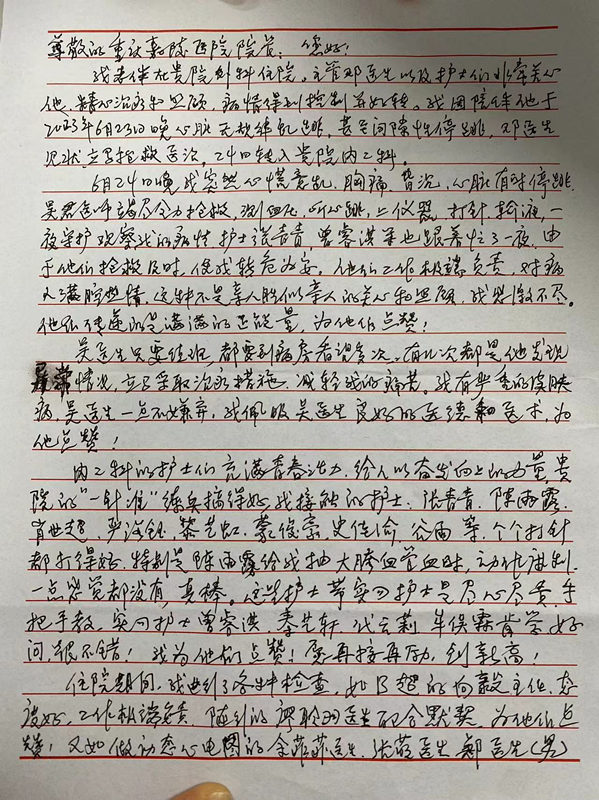 尊敬的重庆嘉陵医院院长：您好！
我老伴在贵院外科住院，主管邓医生以及护士们非常关心
他，精心治疗和照顾，病情得到控制并好转。我因陪伴他于
2023年6月23日晚心脏无规律乱跳，甚至间隙性停跳，邓医生
见状立马抢救医治，24日转入贵院内二科。
6月24日晚我突然心慌意乱，胸痛，昏沉，心脏有时停跳，
吴君医师竭尽全力抢救，测血压，听心跳，上仪器，打针，输液，一
夜守护观察我的病情，护士张青青，曾容洪等也跟着忙了一夜，由
于他们抢救及时，使我转危为安，他们工作极端负责，对病
人满腔热情，这种不是亲人胜似亲人的关心和照顾，我感激不尽。
他们传递的是满满的正能量，为他们点赞！
吴医生只要值班，都要到病房看望多次，有几次都是他发现
异常情况，立马采取治疗措施，减轻我的痛苦。我有严重的皮肤
病，吴医生一点不嫌弃，我佩服吴医生良好的医德和医术，为
他点赞！
内二科的护士们充满青春活力，给人以奋发向上的力量，贵
院的"一针准"练兵搞得好，我接触的护士：张青青，陈雨露，
肖世超，严 钰，黎艺虹，蒙俊豪，史佳 ，谷雨等，个个打针
都打得好，特别是陈雨露给我抽大胯血管血时，动作麻利，
一点感觉都没有，真棒。这些护士带实习护士是尽心尽责，手
把手教，实习护士曾容洪，秦艺轩，代云莉，牟俣霖肯学好
问，很不错！我为他们点赞！愿再接再励，创新高！
住院期间，我进行了各种检查，如B超的向毅主任，态
度好，工作极端负责，随行的 聆羽医生配合默契，为他们点
赞！又如做动态心电图的余菲菲医生，张萌医生，郑医生（男）